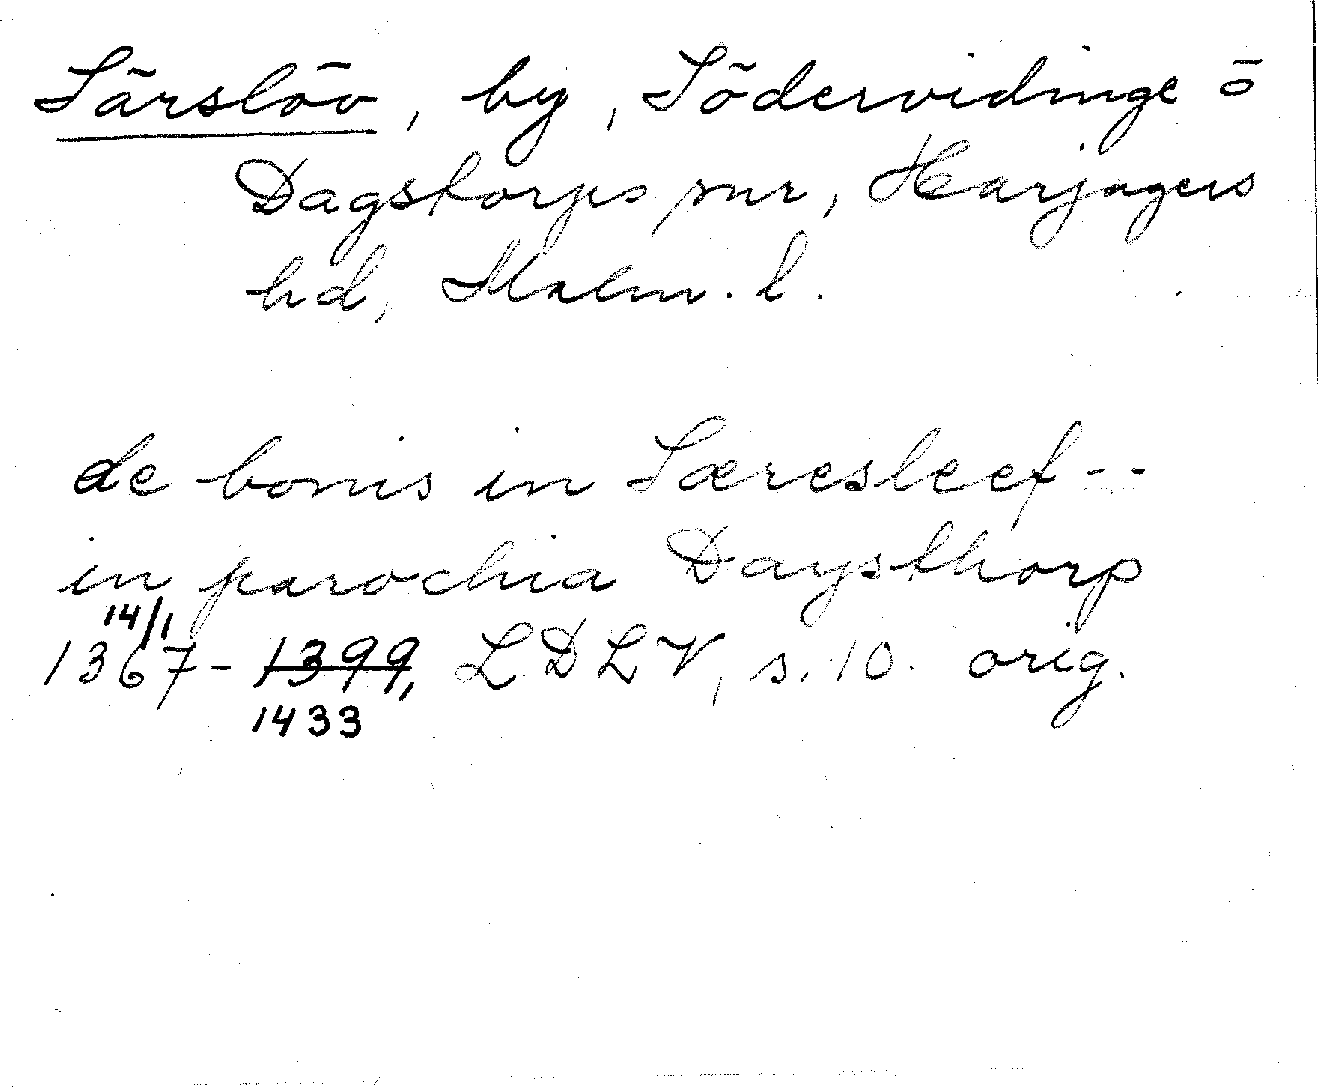 Särslöv, by, Södervidinge o
Dagstorps snr, Harjagers
hd, Malm. l.
de bonis in Særesleef --
in parochia Daysthorp
14/1
1367 - 1399, LDLV, s. 10. orig.
1433